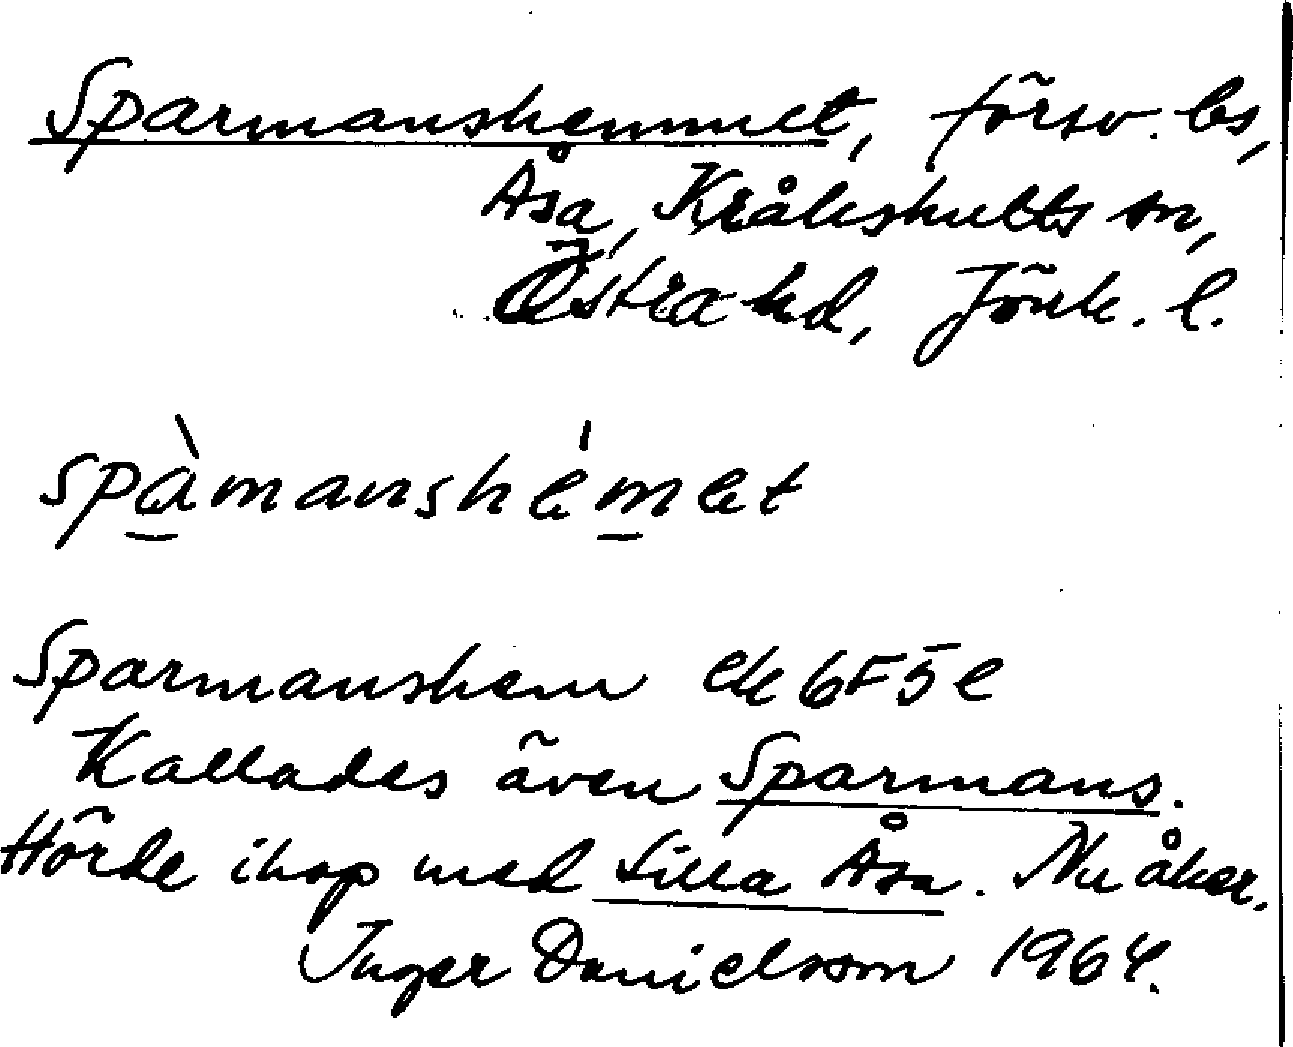 Sparmanshemmet, försv. bs,
Åsa, Kråkshults sn,
Östra hd, Jönk. l.
spàmanshémet
Sparmanshem ek 6F5e
Kallades även Sparmans.
Hörde ihop med Lilla Åsa. Nu åker.
Inger Danielsson 1964.